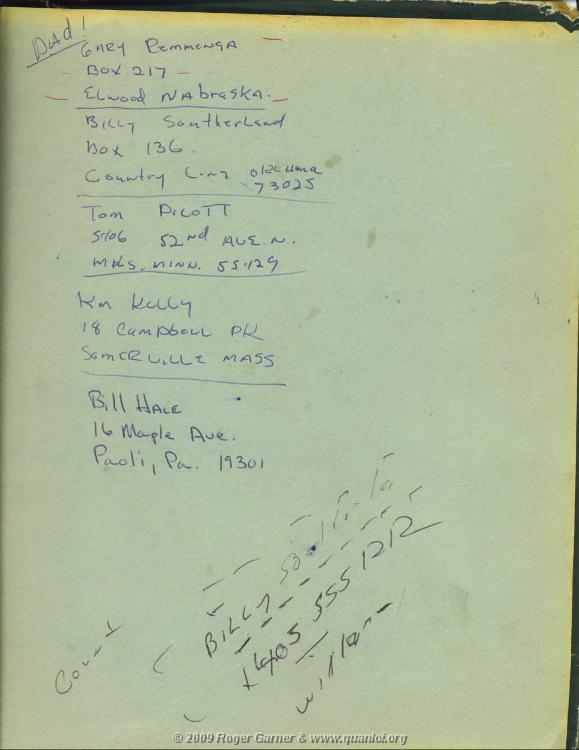 Dad!
Gary Remmenga
Box 217
Elwood Nabraska.
Billy Southerland
Box 136
Country Line Oklahoma
73025
Tom Pilott
5106 52nd Ave. N.
Mpls. Minn. 55429
Kelly
18 Campbell Pk
Somerville Mass
Bill Hale
16 Maple Ave.
Paoli, Pa. 19301
Billy
1405 555 1212
© 2009 Roger Garner & www.quanloi.org